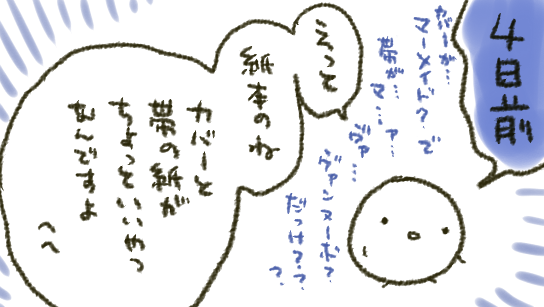 4日前
カバーが…
マーメイド?で
帯が…
マ…ァ…
ヴァ…
ヴァンヌーボ?
だっけ??
?
えっと
紙本のね
カバーと
帯の紙が
ちょっといいやつ
なんですよ
へへ